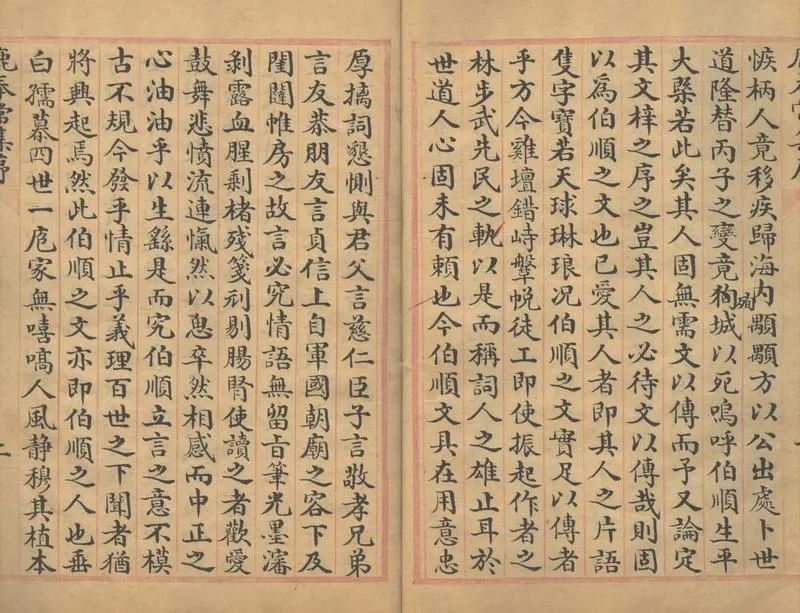 愱柄人竟移疾歸海內顒顒方以公出處卜世
道隆替丙子之變竟狥城以死嗚呼伯順生平
大槩若此矣其人固無需文以傳而予又論定
其文梓之序之豈其人之必待文以傳哉則固
以爲伯順之文也已愛其人者即其人之片語
隻字寶若天球琳琅况伯順之文實足以傳者
乎方今雞壇錯峙鞶帨徒工即使振起作者之
林步武先民之軌以是而稱詞人之雄止耳於
世道人心固未有賴也今伯順文具在用意忠
厚摛詞懇惻與君父言慈仁臣子言敬孝兄弟
言友恭朋友言貞信上自軍國朝廟之容下及
閨闥帷房之故言必究情語無留旨筆光墨瀋
剝露血腥剩楮殘箋刳剔腸腎使讀之者歡愛
鼓舞悲憤流連愾然以息卒然相感而中正之
心油油乎以生繇是而究伯順立言之意不模
古不規今發乎情止乎義理百世之下聞者猶
將興起焉然此伯順之文亦即伯順之人也垂
白孺慕四世一卮家無嘻嗃人風静穆其植本
鹿奉常集序
二